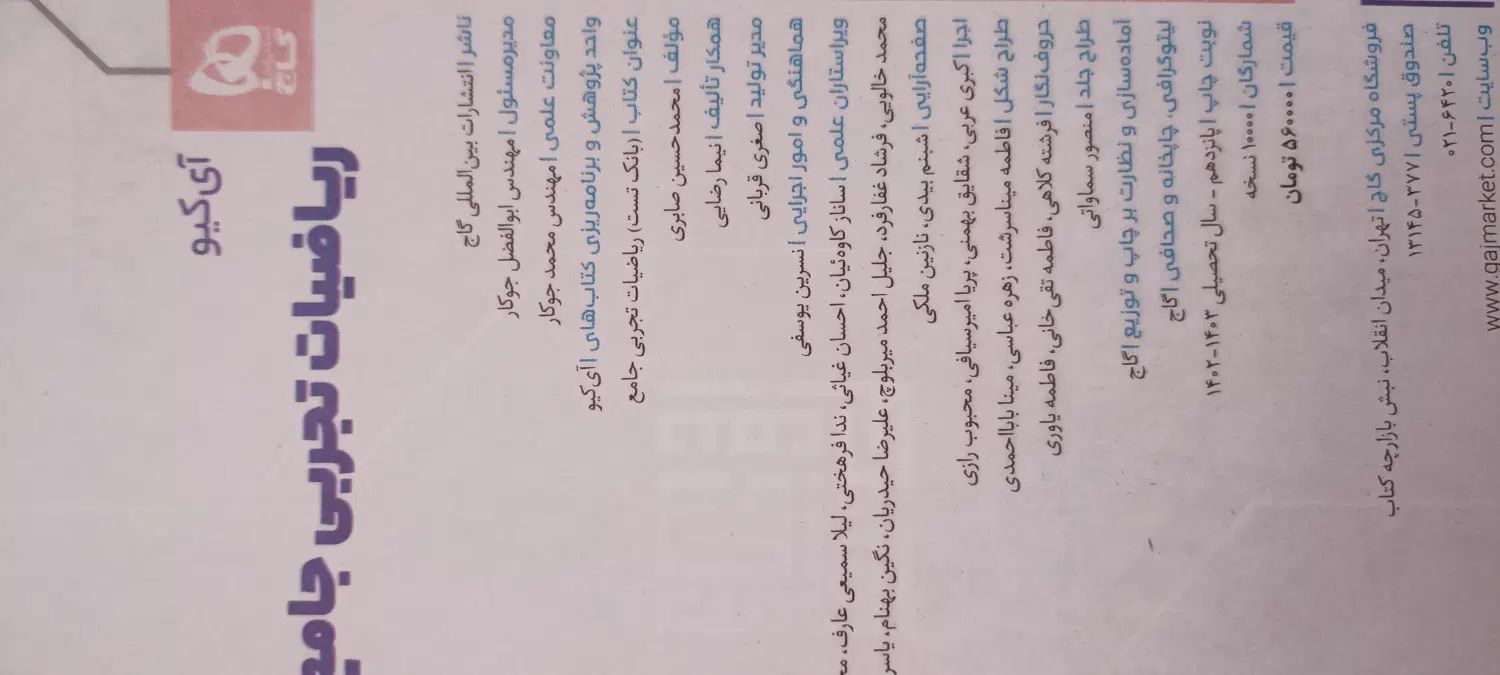 گاج
آی‌کیو
ریاضیات تجربی جامع
ناشر | انتشارات بین‌المللی گاج
مدیرمسئول | مهندس ابوالفضل جوکار
معاونت علمی | مهندس محمد جوکار
واحد پژوهش و برنامه‌ریزی کتاب‌های | آی‌کیو
عنوان کتاب | (بانک تست) ریاضیات تجربی جامع
مؤلف | محمدحسین صابری
همکار تألیف | نیما رضایی
مدیر تولید | صغری قربانی
هماهنگی و امور اجرایی | نسرین یوسفی
ویراستاران علمی | ساناز کاوه‌ئیان، احسان غیاثی، ندا فرهختی، لیلا سمیعی عارف،
محمد خالویی، فرشاد غفارفرد، جلیل احمد میربلوچ، علیرضا حیدریان، نگین بهنام، یاسر
صفحه‌آرایی | شبنم بیدی، نازنین ملکی
اجرا | کبری عربی، شقایق بهمنی، پریا امیرسیافی، محبوب رازی
طراح شکل | فاطمه میناسرشت، زهره عباسی، مینا بابااحمدی
حروف‌نگار | فرشته کلاهی، فاطمه تقی‌خانی، فاطمه یاوری
طراح جلد | منصور سماواتی
آماده‌سازی و نظارت بر چاپ و توزیع | گاج
لیتوگرافی، چاپخانه و صحافی | گاج
نوبت چاپ | پانزدهم - سال تحصیلی ۱۴۰۳-۱۴۰۲
شمارگان | ۱۰۰۰۰ نسخه
قیمت | ۵۶۰۰۰۰ تومان
فروشگاه مرکزی گاج | تهران، میدان انقلاب، نبش بازارچه کتاب
صندوق پستی | ۳۷۷-۱۳۱۴۵
تلفن | ۰۲۱-۶۴۲۰
وب‌سایت | www.gajmarket.com